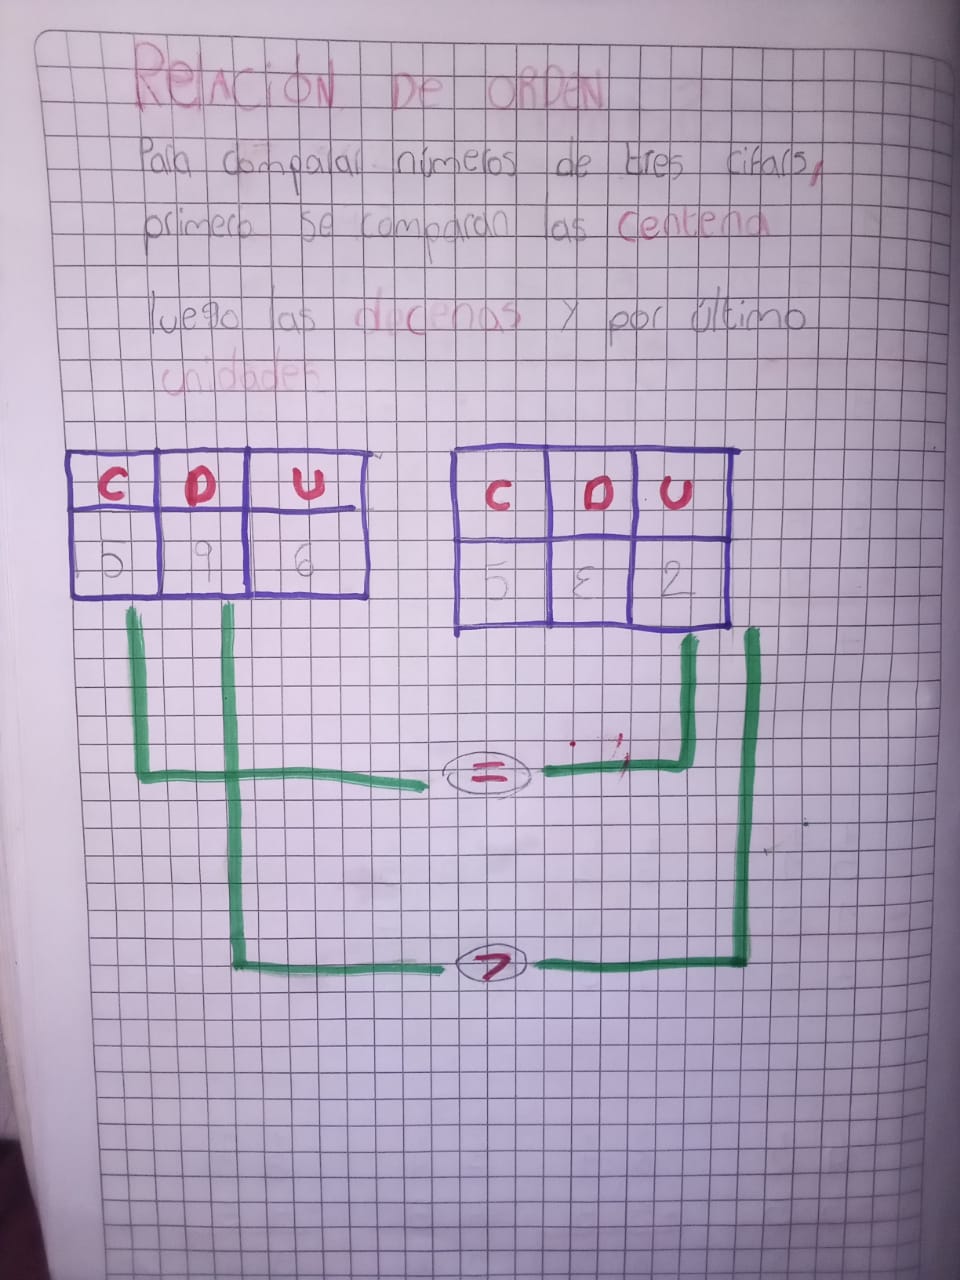 Relación de ORDEN
Para comparar números de tres cifars,
primero se comparan las centena
luego las decenas y por último
unidades
C D U
5 9 6
C D U
5 3 2
=
>